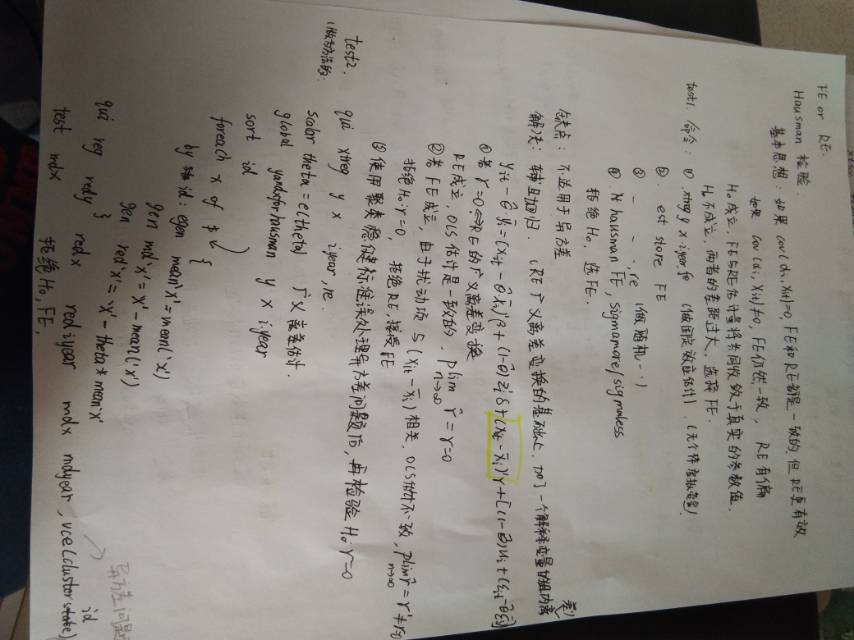 FE or RE.
Hausman 检验
基本思想：如果 cov(αi, Xit)=0, FE和RE都是一致的, 但RE更有效
如果 cov(αi, Xit)≠0, FE仍然一致, RE有偏
H₀成立, FE与RE估计量将共同收敛于真实的参数值,
H₀不成立, 两者的差距过大, 选择FE.
test1 命令: ① xtreg y x i.year, fe (做固定效应估计)
② est store FE
③ - - - , re (做随机…)
④ hausman FE, sigmamore/sigmaless
拒绝H₀, 选FE.
缺点: 不适用于异方差
解决: 辅助回归. (RE广义离差变换的基础上. 加一个解释变量的组内离差)
yit - θ̂ȳi = (xit - θ̂x̄i)'β + (1-θ̂)zi'δ + (xit - x̄i)'γ + [(1-θ̂)ui + (εit - θ̂ε̄i)]
① 若 γ=0 ⇔ RE的广义离差变换
RE成立, OLS估计是一致的. plim n→∞ γ̂ = γ = 0
② 若FE成立, 由于扰动项与(xit - x̄i)相关, OLS估计不一致, plim n→∞ γ̂ = γ* ≠ γ=0
拒绝H₀: γ=0, 拒绝RE, 接受FE
③ 使用聚类稳健标准误处理异方差问题后, 再检验 H₀: γ=0
test2.
qui xtreg y x i.year, re.
scalar theta = e(theta) 广义离差估计.
global yandxforhausman y x i.year
sort id
foreach x of $ {
by id: egen mean`x' = mean(`x')
gen md`x' = `x' - mean(`x')
gen red`x' = `x' - theta * mean`x'
}
qui reg redy redx rediyear mdx mdyear, vce(cluster id)
test mdx 拒绝H₀, FE.
异方差问题